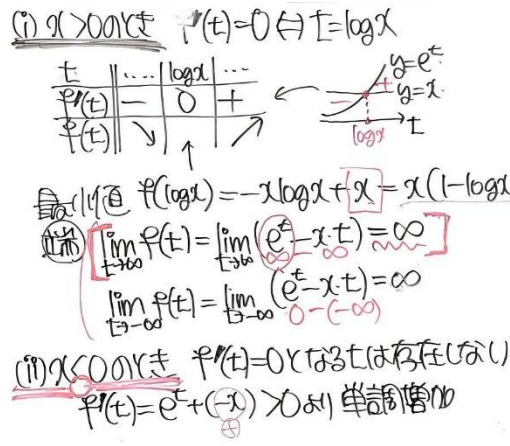 (i) x>0のとき f'(t)=0⇔t=logx
t …. logx …
f'(t) − 0 +
f(t) ↘ ↗
y=e^t
+ y=x
−
logx t
最小値 f(logx)=-xlogx+x=x(1-logx
端 lim_{t→∞} f(t)=lim_{t→∞}(e^t-x・t)=∞
∞ ∞
lim_{t→-∞} f(t)=lim_{t→-∞}(e^t-x・t)=∞
0-(-∞)
(ii) x<0のとき f'(t)=0となるtは存在しない
f'(t)=e^t+(-x)>0より単調増加
⊕